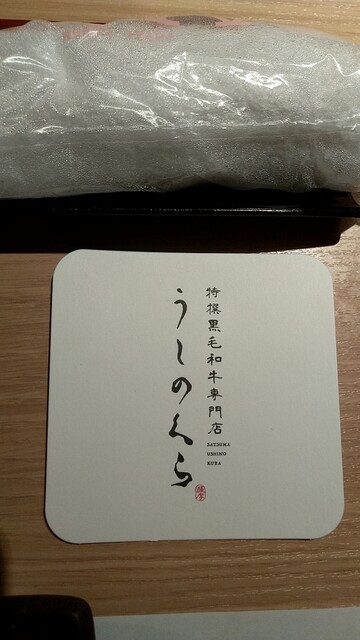 特撰黒毛和牛専門店
うしのくら
SATSUMA
USHINO
KURA